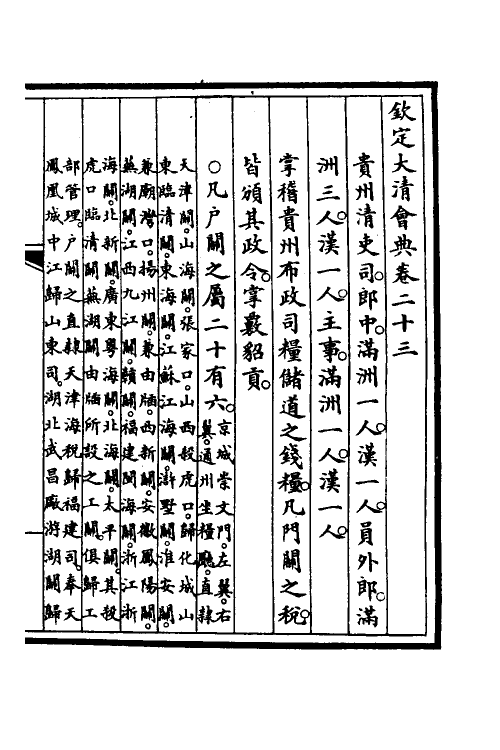 欽定大清會典卷二十三
貴州清吏司。郎中。滿洲一人。漢一人。員外郎。滿
洲三人。漢一人。主事。滿洲一人。漢一人。
掌稽貴州布政司糧儲道之錢糧。凡門關之稅。
皆頒其政令。掌數貂貢。
○凡戶關之屬二十有六。京城崇文門。左翼。右
翼。通州坐糧廳。直隸
天津關。山海關。張家口。山西殺虎口。歸化城山
東臨清關。東海關。江蘇江海關。滸墅關。淮安關。
兼廟灣口。揚州關。兼由牐。西新關。安徽鳳陽關。
蕪湖關。江西九江關。贛關。福建閩海關。浙江浙
海關。北新關。廣東粵海關。北海關。太平關。其殺
虎口臨清關蕪湖關由牐所設之工關。俱歸工
部管理。戶關之直隸天津海稅歸福建司。奉天
鳳凰城中江歸山東司。湖北武昌廠游湖關歸